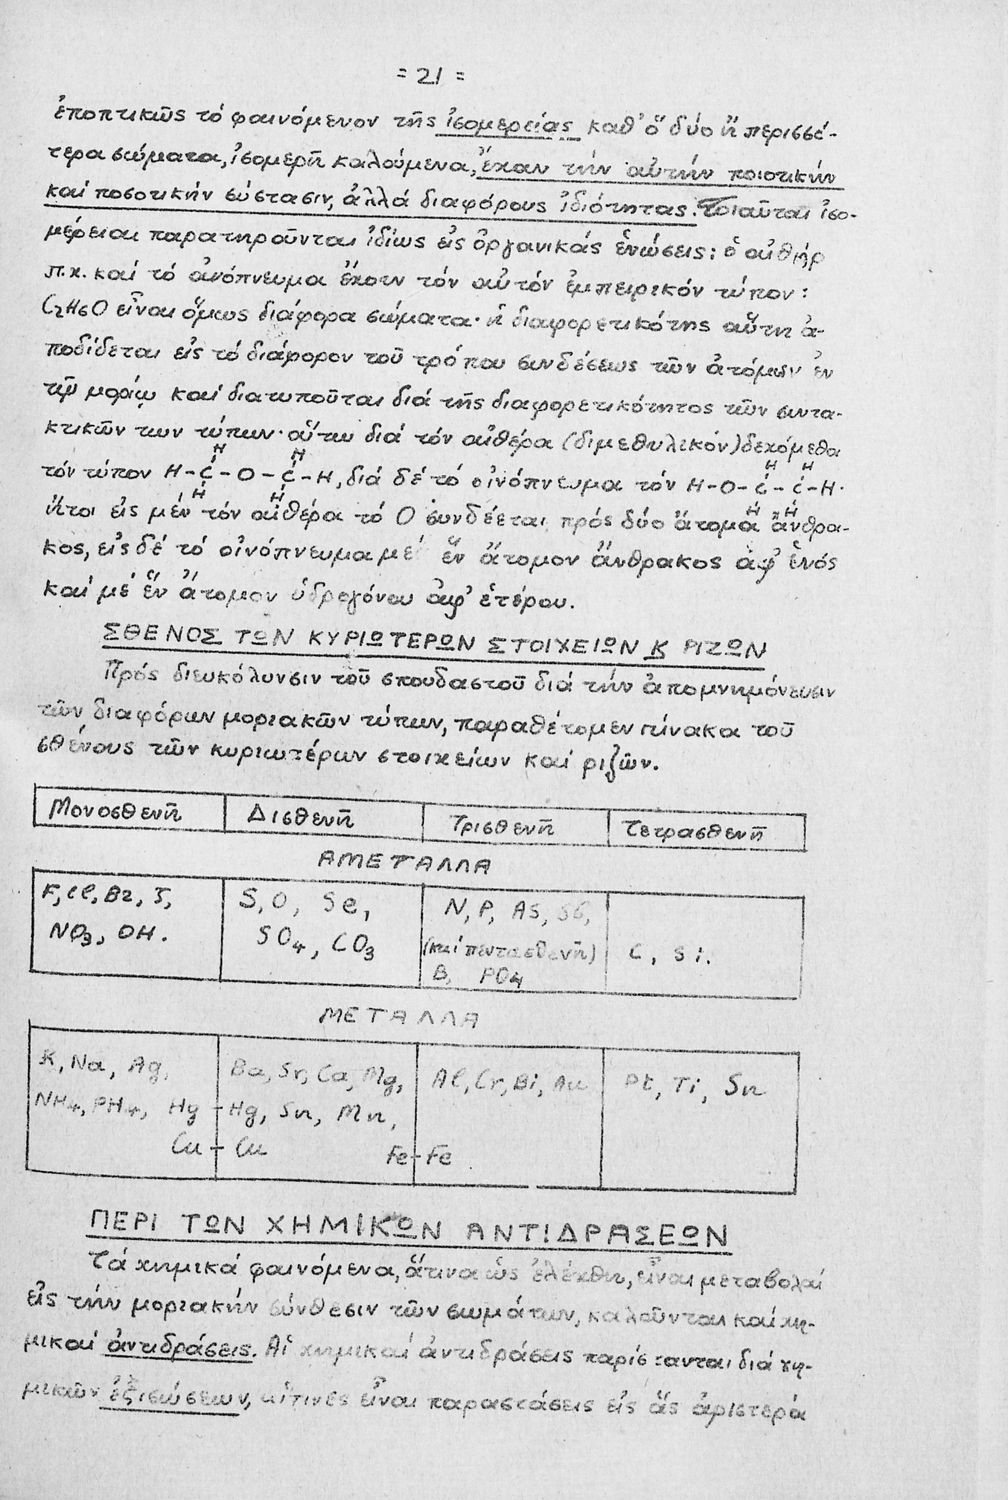 = 21 =
ἐποπτικῶς τό φαινόμενον τῆς ἰσομερείας καθ' ὅ δύο ἤ περισσό-
τερα σώματα, ἰσομερῆ καλούμενα, ἔχουν τήν αὐτήν ποιοτικήν
καί ποσοτικήν σύστασιν, ἀλλά διαφόρους ἰδιότητας. Τοιαῦται ἰσο-
μέρειαι παρατηροῦνται ἰδίως εἰς ὀργανικάς ἑνώσεις: ὁ αἰθήρ
π.χ. καί τό οἰνόπνευμα ἔχουν τόν αὐτόν ἐμπειρικόν τύπον:
C2H6O εἶναι ὅμως διάφορα σώματα· ἡ διαφορετικότης αὕτη ἀ-
ποδίδεται εἰς τό διάφορον τοῦ τρόπου συνδέσεως τῶν ἀτόμων ἐν
τῷ μορίῳ καί διατυποῦται διά τῆς διαφορετικότητος τῶν συντα-
κτικῶν των τύπων· οὕτω διά τόν αἰθέρα (διμεθυλικόν) δεχόμεθα
H H H H
τόν τύπον H-C-O-C-H, διά δέ τό οἰνόπνευμα τόν H-O-C-C-H·
H H H H
ἤτοι εἰς μέν τόν αἰθέρα τό O συνδέεται πρός δύο ἄτομα ἄνθρα-
κος, εἰς δέ τό οἰνόπνευμα μέ ἕν ἄτομον ἄνθρακος ἀφ' ἑνός
καί μέ ἕν ἄτομον ὑδρογόνου ἀφ' ἑτέρου.
ΣΘΕΝΟΣ ΤΩΝ ΚΥΡΙΩΤΕΡΩΝ ΣΤΟΙΧΕΙΩΝ Κ ΡΙΖΩΝ
Πρός διευκόλυνσιν τοῦ σπουδαστοῦ διά τήν ἀπομνημόνευσιν
τῶν διαφόρων μοριακῶν τύπων, παραθέτομεν πίνακα τοῦ
σθένους τῶν κυριωτέρων στοιχείων καί ριζῶν.
Μονοσθενῆ Δισθενῆ Τρισθενῆ Τετρασθενῆ
ΑΜΕΤΑΛΛΑ
F, Cl, Br, J, S, O, Se, N, P, As, Sb,
NO3, OH. SO4, CO3 (καί πεντασθενῆ) C, Si.
B, PO4
ΜΕΤΑΛΛΑ
K, Na, Ag, Ba, Sr, Ca, Mg, Al, Cr, Bi, Au Pt, Ti, Sn
NH4, PH4, Hg - Hg, Sn, Mn,
Cu - Cu Fe - Fe
ΠΕΡΙ ΤΩΝ ΧΗΜΙΚΩΝ ΑΝΤΙΔΡΑΣΕΩΝ
Τά χημικά φαινόμενα, ἅτινα ὡς ἐλέχθη, εἶναι μεταβολαί
εἰς τήν μοριακήν σύνθεσιν τῶν σωμάτων, καλοῦνται καί χη-
μικαί ἀντιδράσεις. Αἱ χημικαί ἀντιδράσεις παρίστανται διά χη-
μικῶν ἐξισώσεων, αἵτινες εἶναι παραστάσεις εἰς ἅς ἀριστερά